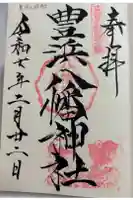 奉拝
豊浜八幡神社
令和七年二月廿二日